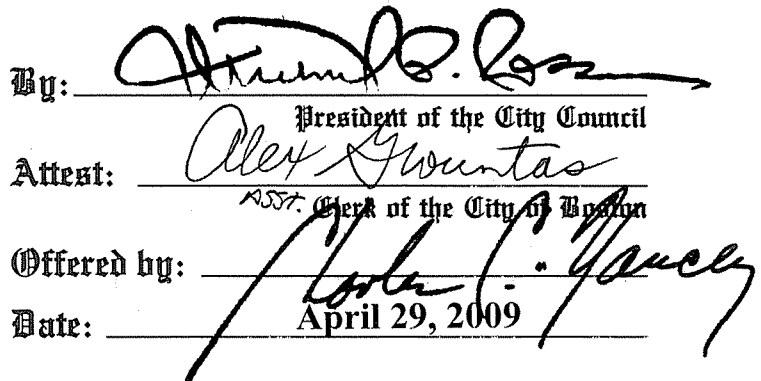 By: Michael P. Ross
President of the City Council
Attest: Alex Geourntas
Asst. Clerk of the City of Boston
Offered by: Charles C. Yancey
Date: April 29, 2009